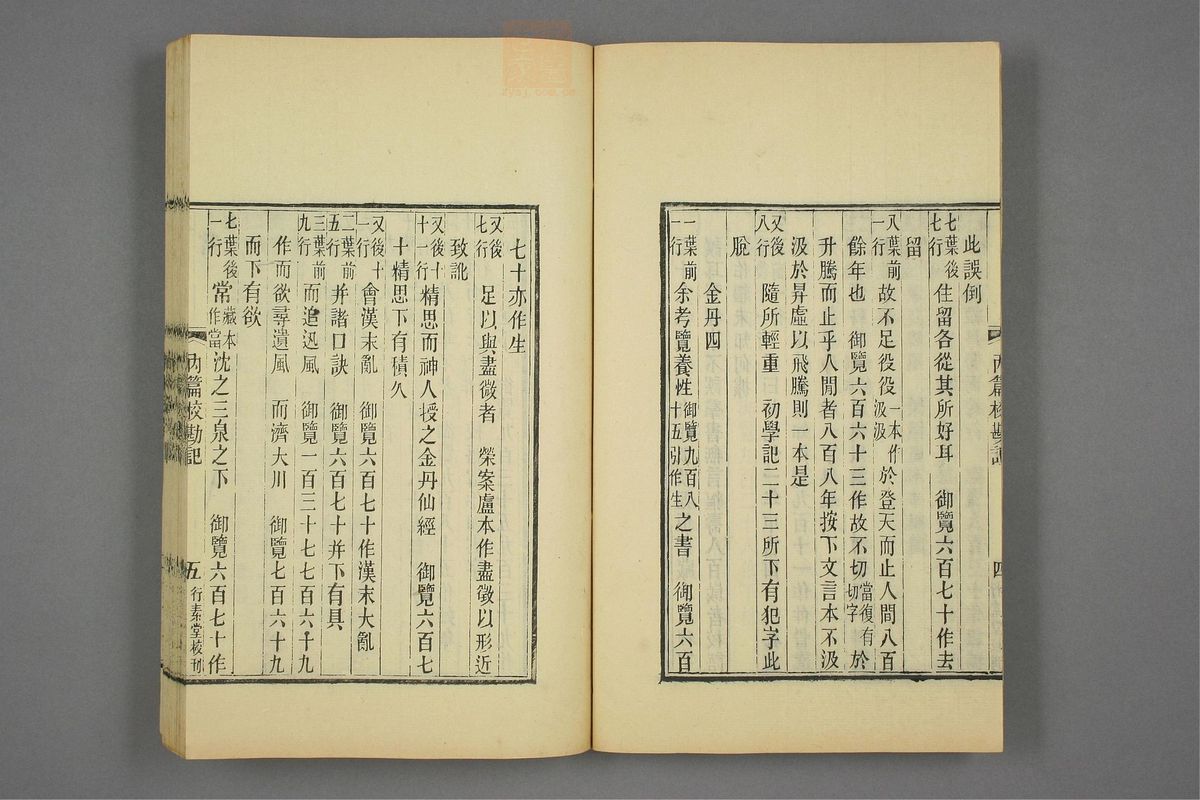 此誤倒
七葉後七行住留各從其所好耳　御覽六百七十作去
留
八葉前一行故不足役役一本作汲汲於登天而止人間八百
餘年也　御覽六百六十三作故不切當復有切字於
升騰而止乎人間者八百八年按下文言本不汲
汲於昇虛以飛騰則一本是
又後八行隨所輕重　初學記二十三所下有犯字此
脫
金丹四
一葉前一行余考覽養性御覽九百八十五引作生之書　御覽六百
丙篇校勘記
四
七十亦作生
又後七行足以與盡微者　榮案盧本作盡徵以形近
致訛
又後十一行精思而神人授之金丹仙經　御覽六百七
十精思下有積久
又後十一行會漢末亂　御覽六百七十作漢末大亂
二葉前五行并諸口訣　御覽六百七十并下有具
三葉前九行而追迅風　御覽一百三十七七百六十九
作而欲尋遺風　而濟大川　御覽七百六十九
而下有欲
七葉後一行常藏本作當沈之三泉之下　御覽六百七十作
丙篇校勘記
五
行素堂校刊